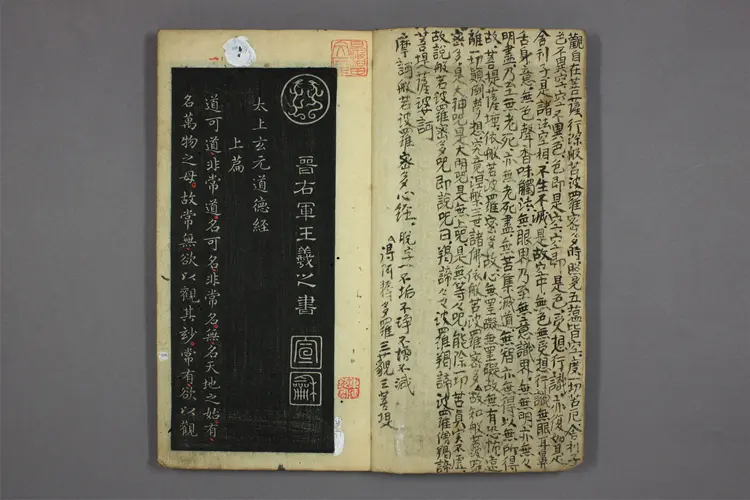 觀自在菩薩行深般若波羅密多時照見五蘊皆空度一切苦厄舍利子
色不異空空不異色色即是空空即是色受想行識亦復如是
舍利子是諸法空相不生不滅是故空中無色無受想行識無眼耳鼻
舌身意無色聲香味觸法無眼界乃至無意識界無無明亦無無
明盡乃至無老死亦無老死盡無苦集滅道無智亦無得以無所得
故菩提薩埵依般若波羅密多故心無罣礙無罣礙故無有恐怖遠
離一切顛倒夢想究竟涅槃三世諸佛依般若波羅密多故知般若波羅
密多是大神呪是大明呪是無上呪是無等々呪能除一切苦真實不虛
故說般若波羅密多呪即說呪曰揭諦々々波羅揭諦波羅僧揭諦
菩提薩婆訶
摩訶般若波羅密多心經 脫字一不垢不淨不增不減
得阿耨多羅三藐三菩提
晉右軍王羲之書
宣龢
太上玄元道德経
上篇
道可道非常道名可名非常名無名天地之始有
名萬物之母故常無欲以觀其妙常有欲以觀